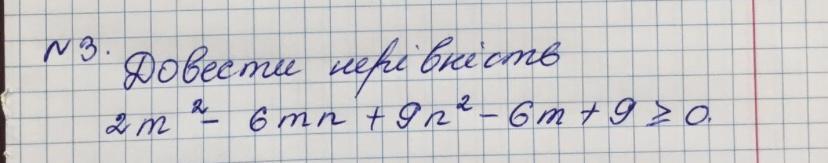 №3. Довести нерівність
2m² - 6mn + 9n² - 6m + 9 ≥ 0.